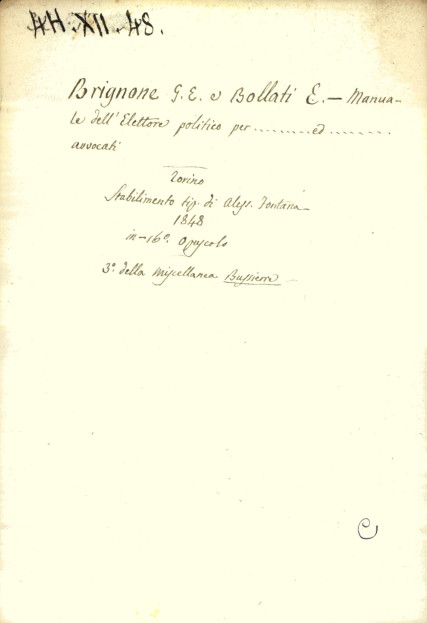 AH. XII. 48.
Brignone G. E. e Bollati E. — Manua-
le dell' Elettore politico per ......... ed .........
avvocati
Torino
Stabilimento tip. di Aless. Fontana
1848
in-16º. Opuscolo
3º. della miscellanea
C